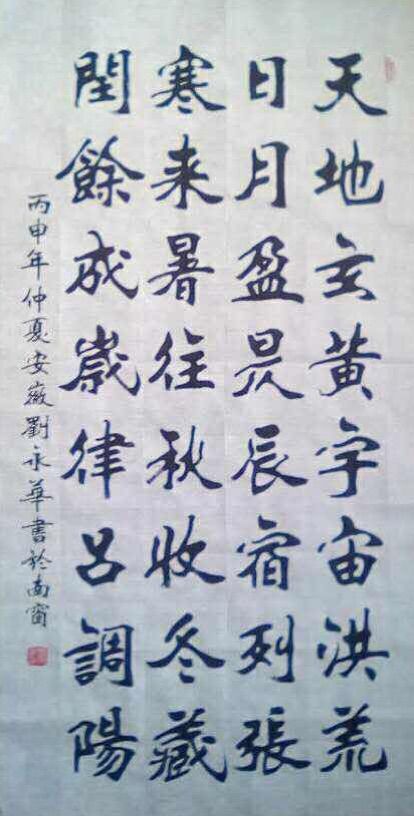 天地玄黄宇宙洪荒
日月盈昃辰宿列張
寒来暑往秋收冬藏
閏餘成歲律吕調陽
丙申年仲夏安徽劉永華書於南窗